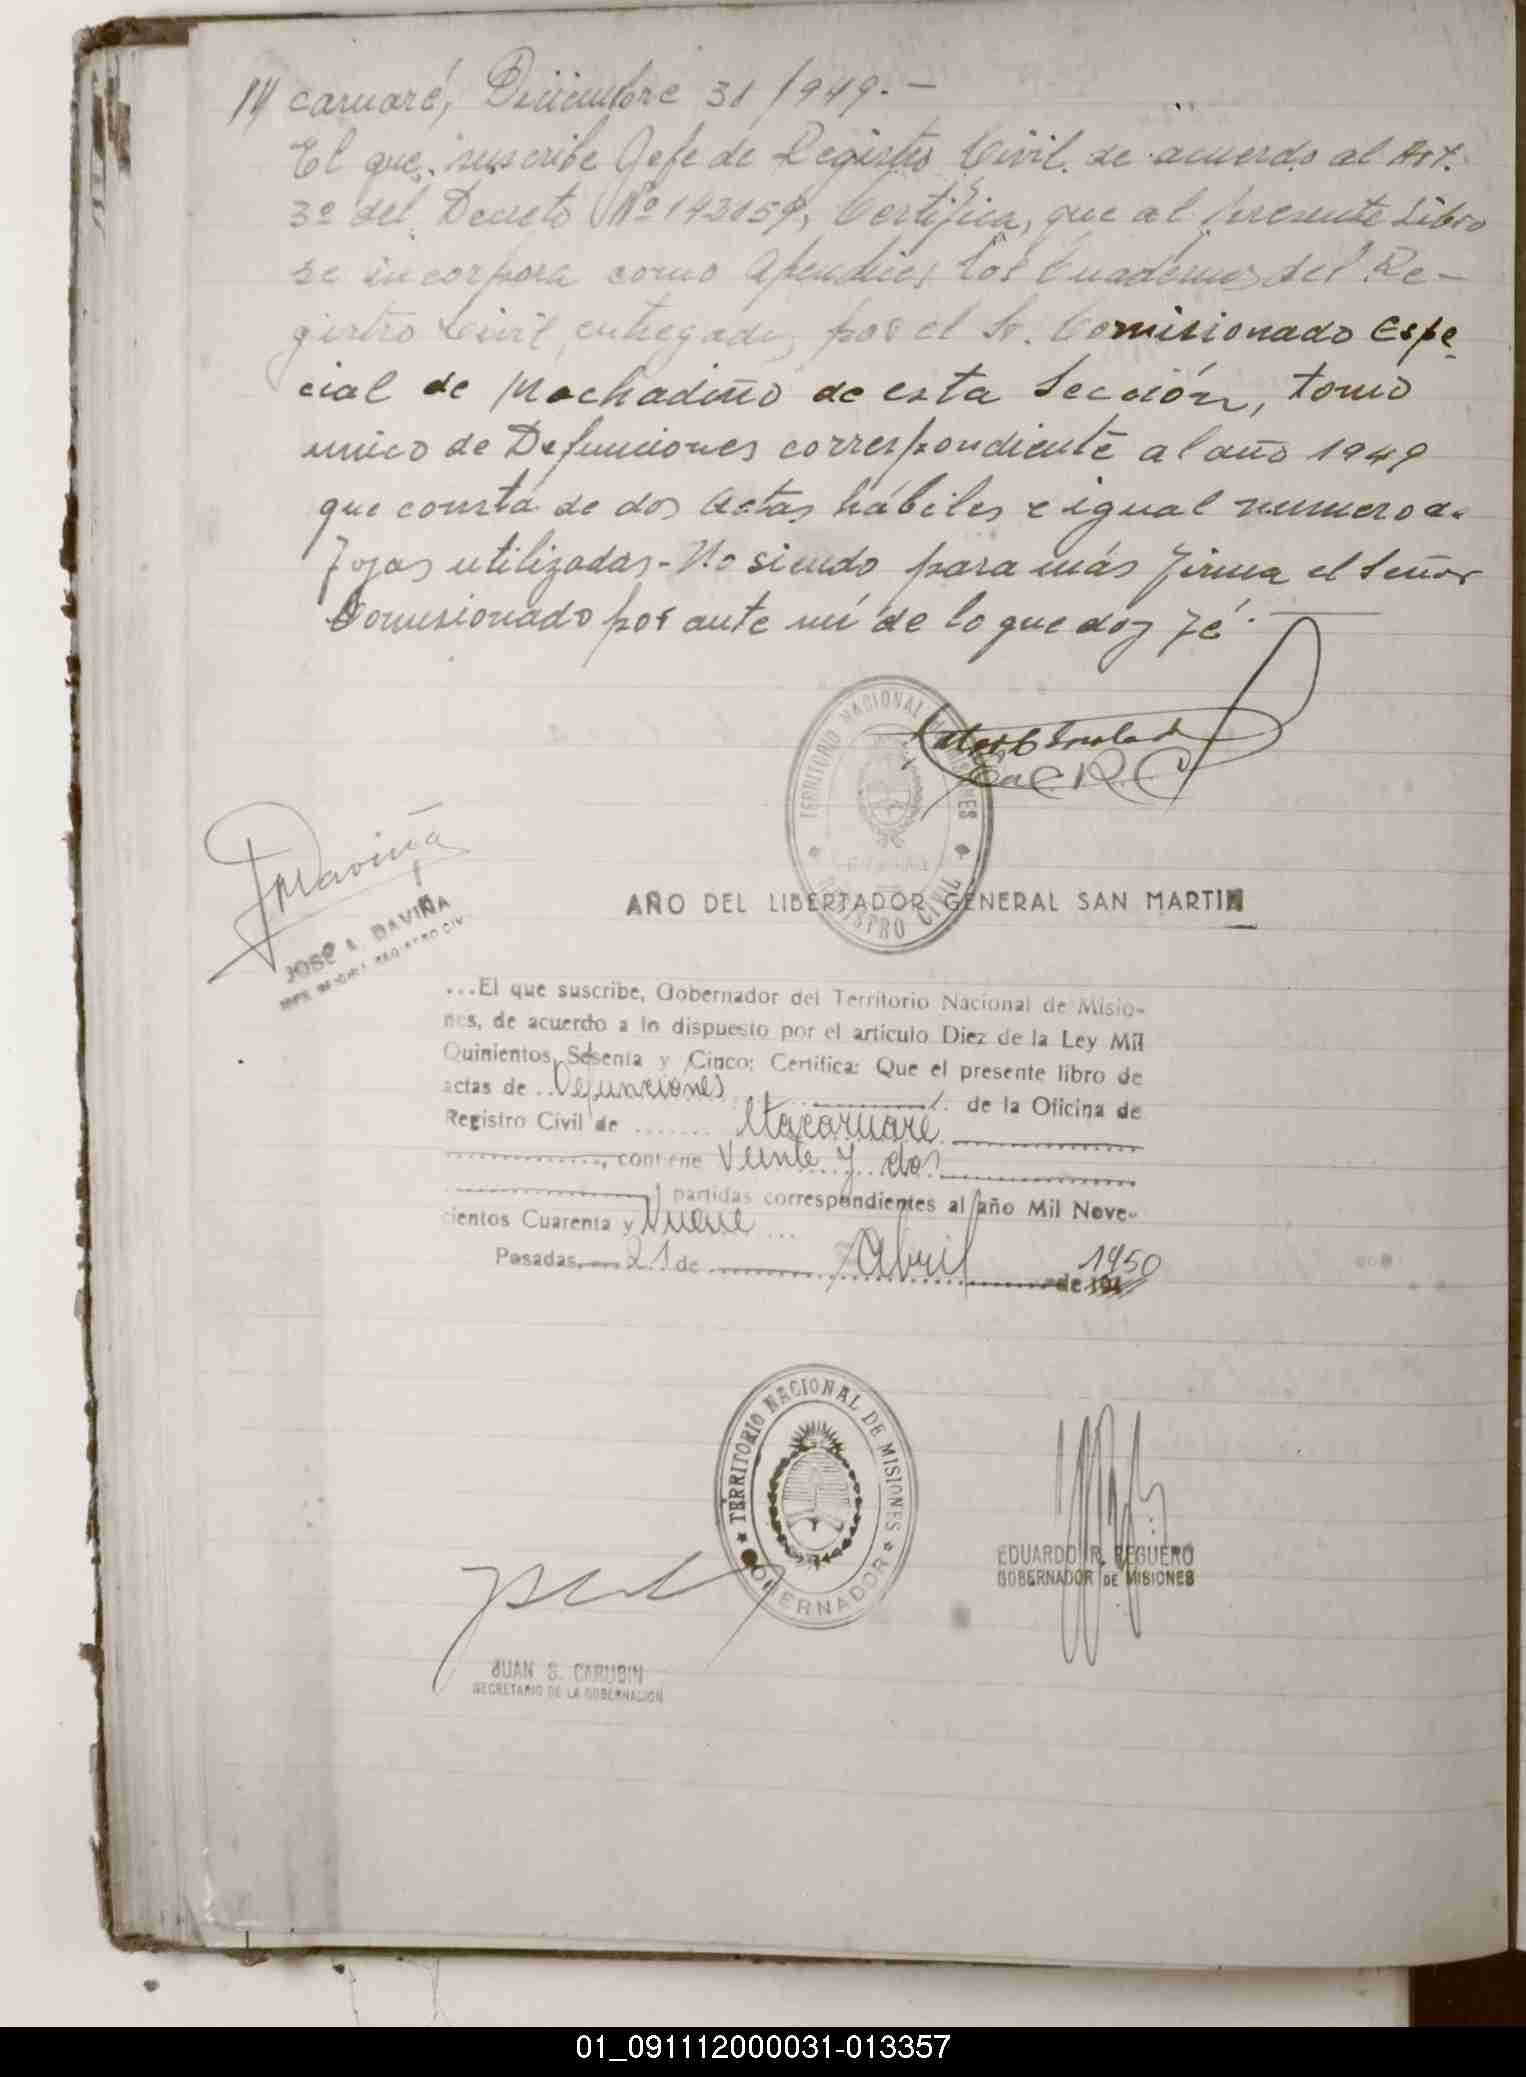 caruaré, Diciembre 31/949.-
El que suscribe Jefe de Registro Civil de acuerdo al Art.
3º del Decreto Nº 142159, Certifica, que al presente Libro
se incorpora como apendice, los Cuadernos del Re-
gistro Civil entregados por el Sr. Comisionado Espe-
cial de Machadiño de esta Sección, tomo
unico de Defunciones correspondiente al año 1949
que consta de dos actas hábiles e igual numero de
fojas utilizadas.- No siendo para más firma el Señor
Comisionado por ante mí de lo que doy fé.
TERRITORIO NACIONAL DE MISIONES
REGISTRO CIVIL
JDaviña
JOSÉ L. DAVIÑA
AÑO DEL LIBERTADOR GENERAL SAN MARTIN
...El que suscribe, Gobernador del Territorio Nacional de Misio-
nes, de acuerdo a lo dispuesto por el artículo Diez de la Ley Mil
Quinientos Sesenta y Cinco; Certifica: Que el presente libro de
actas de Defunciones de la Oficina de
Registro Civil de Itacaruaré
contiene Veinte y dos
partidas correspondientes al año Mil Nove-
cientos Cuarenta y Nueve
Posadas, 21 de Abril de 1950
TERRITORIO NACIONAL DE MISIONES
GOBERNADOR
EDUARDO R. REGUERO
GOBERNADOR DE MISIONES
JUAN S. CARUBIN
SECRETARIO DE LA GOBERNACION
01_091112000031-013357